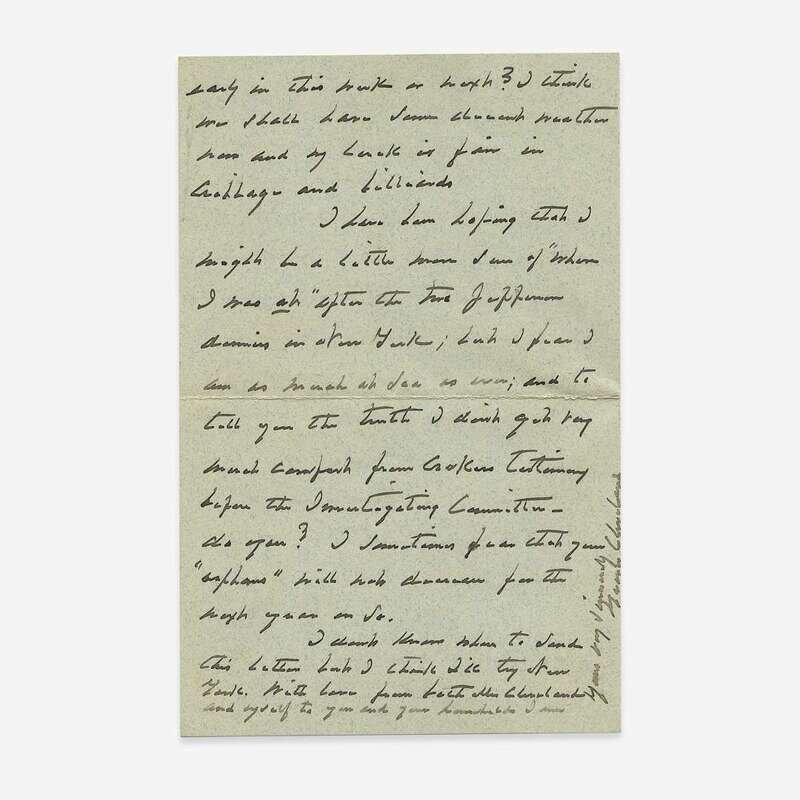 early in this week or next? I think
we shall have some decent weather
now and my luck is fair in
Cribbage and billiards
I have been hoping that I
might be a little more sure of "where
I was at" after the two Jefferson
dinners in New York; but I fear I
am as much at sea as ever; and to
tell you the truth I dont get very
much comfort from Crokers testimony
before the Investigating Committee—
do you? I sometimes fear that your
"orphans" will not decrease for the
next year or so.
I dont know where to send
this letter but I think I'll try New
York. With love from both Mrs Cleveland
and myself to you and your I am
Yours very sincerely
Grover Cleveland